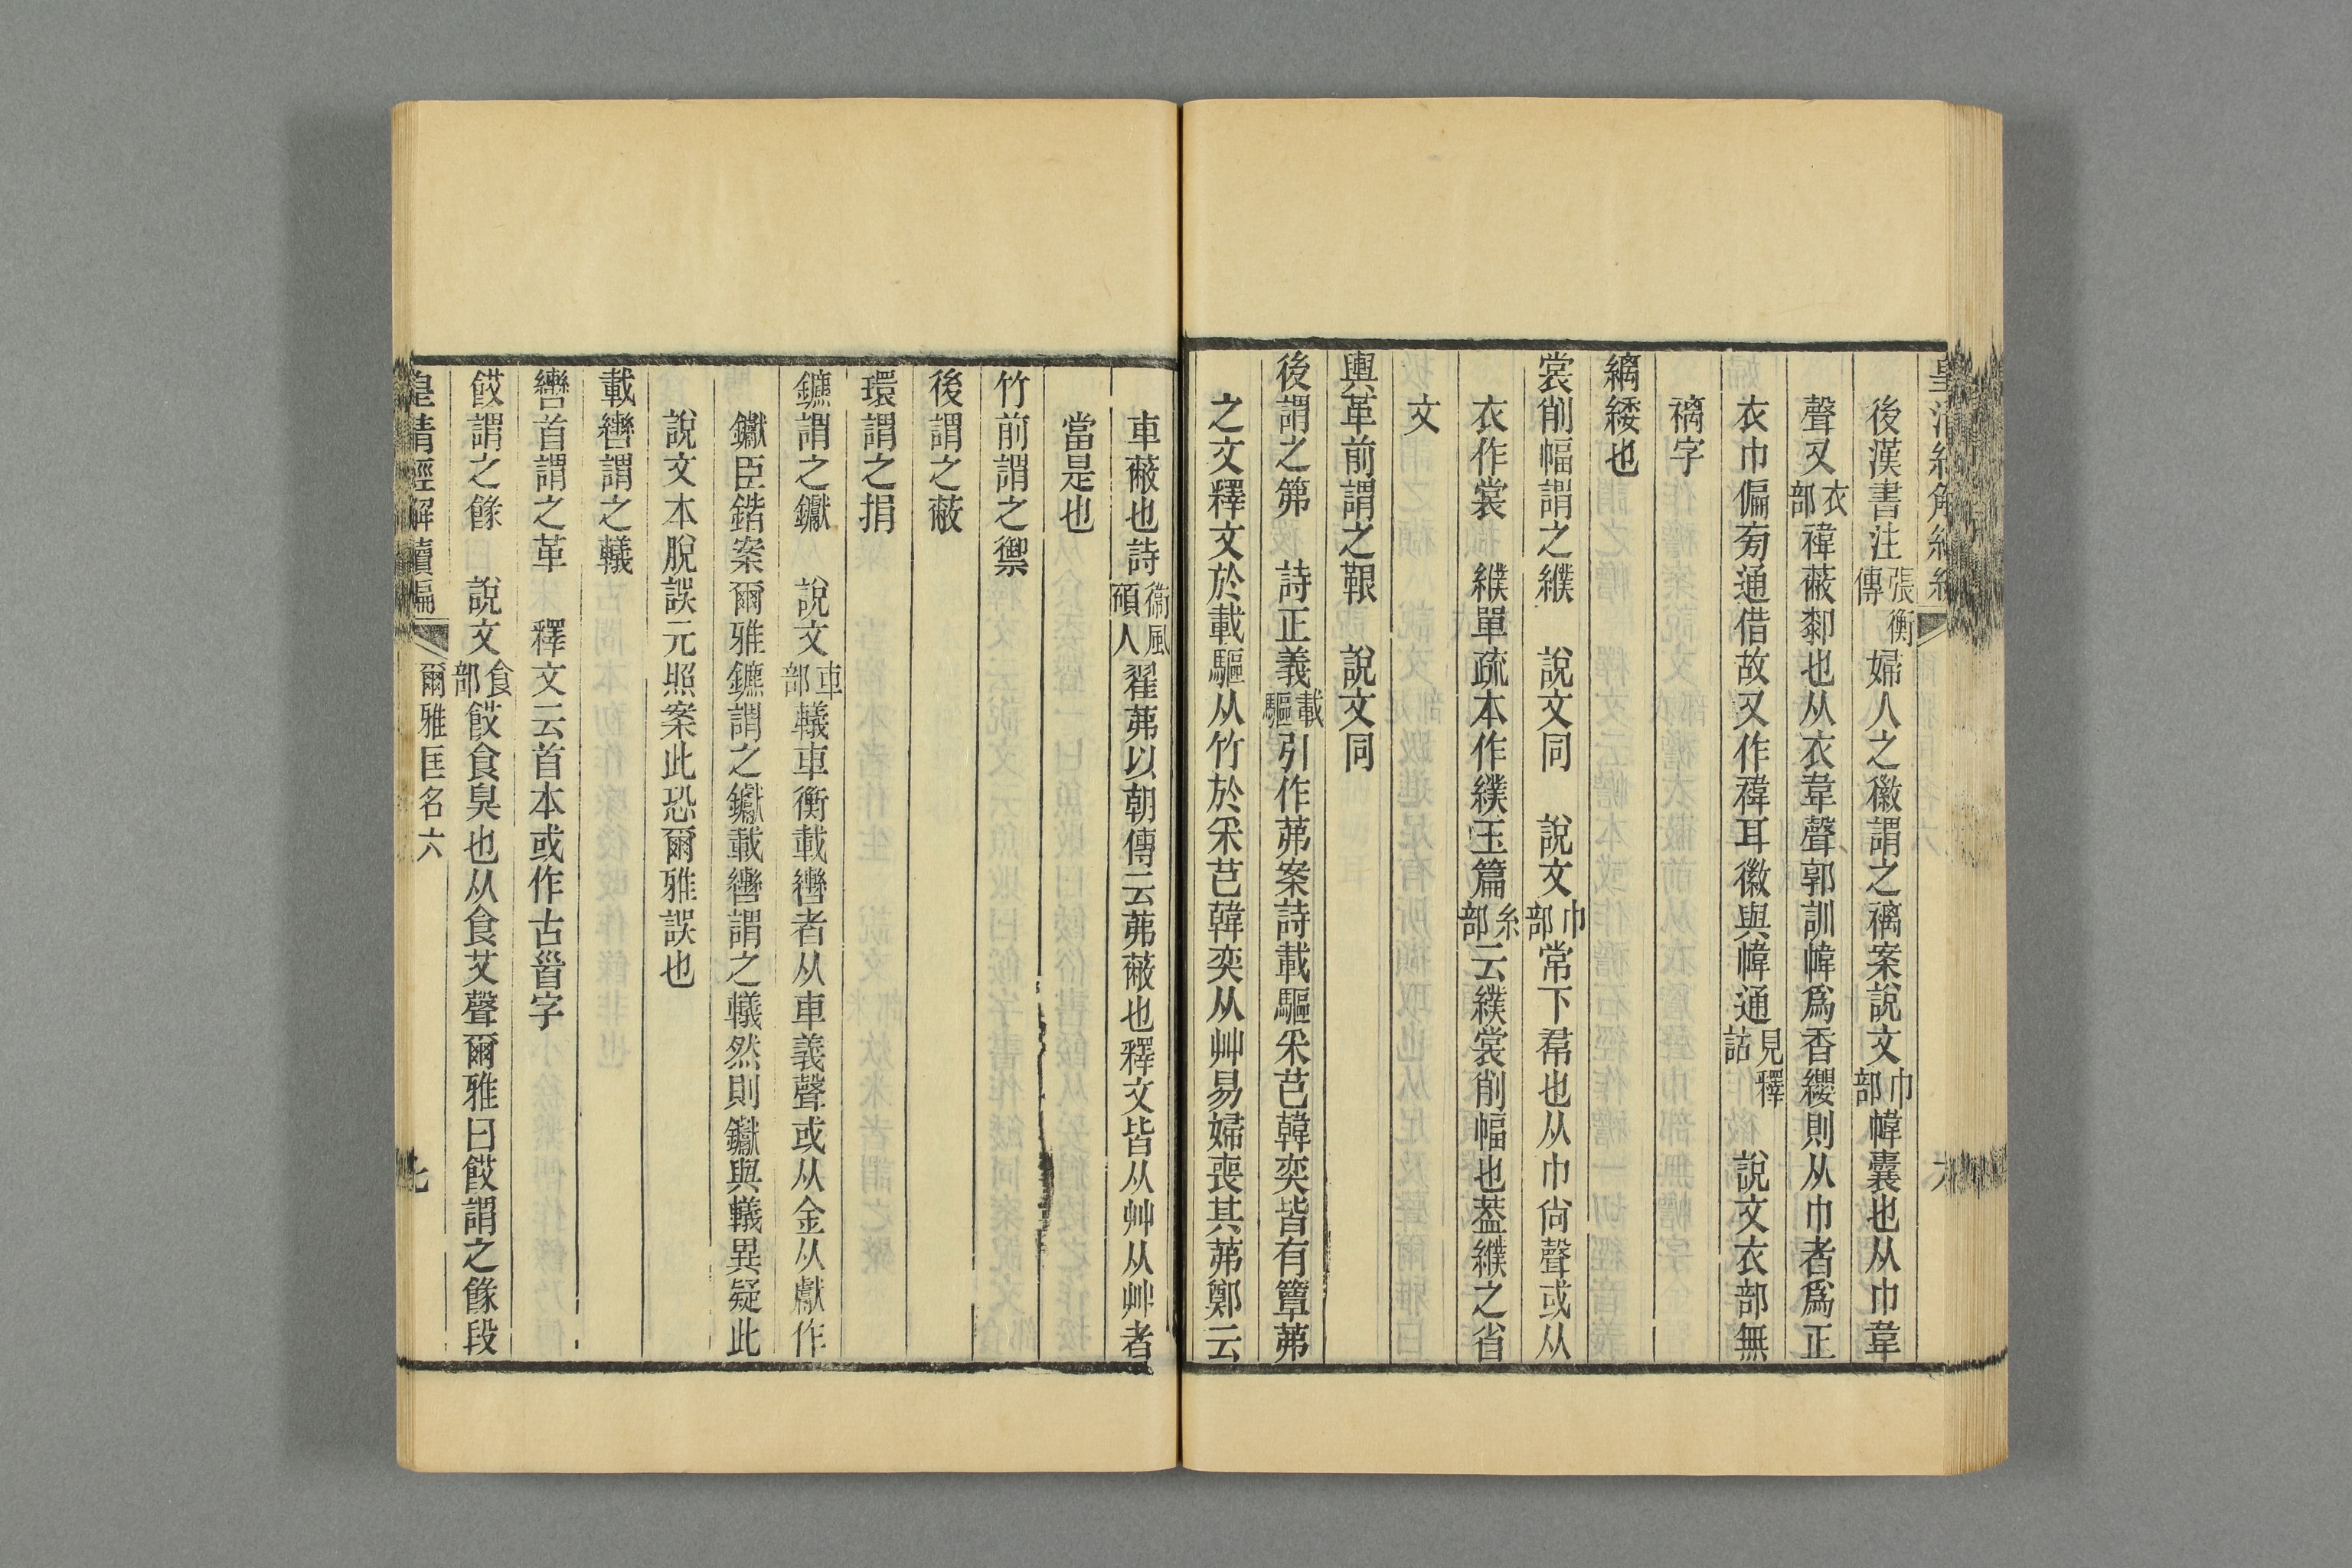 後漢書注張衡傳婦人之徽謂之褵案說文巾部幃囊也从巾韋
聲又衣部褘蔽䣛也从衣韋聲郭訓幃爲香纓則从巾者爲正
衣巾偏㫄通借故又作褘耳徽與幃通見釋詁 說文衣部無
褵字
縭緌也
裳削幅謂之纀 說文同 說文巾部常下帬也从巾尙聲或从
衣作裳 纀單疏本作纀玉篇糸部云纀裳削幅也葢纀之省
文
輿革前謂之鞎 說文同
後謂之笰 詩正義載驅引作茀案詩載驅采芑韓奕皆有簟茀
之文釋文於載驅从竹於采芑韓奕从艸易婦喪其茀鄭云
車蔽也詩衞風碩人翟茀以朝傳云茀蔽也釋文皆从艸从艸者
當是也
竹前謂之禦
後謂之蔽
環謂之捐
鑣謂之钀 說文車部轙車衡載轡者从車義聲或从金从獻作
钀臣鍇案爾雅鑣謂之钀載轡謂之轙然則钀與轙異疑此
說文本脫誤元照案此恐爾雅誤也
載轡謂之轙
轡首謂之革 釋文云首本或作古𩠐字
餀謂之餯 說文食部餀食臭也从食艾聲爾雅曰餀謂之餯段
皇淸經解續編 爾雅匡名六 七